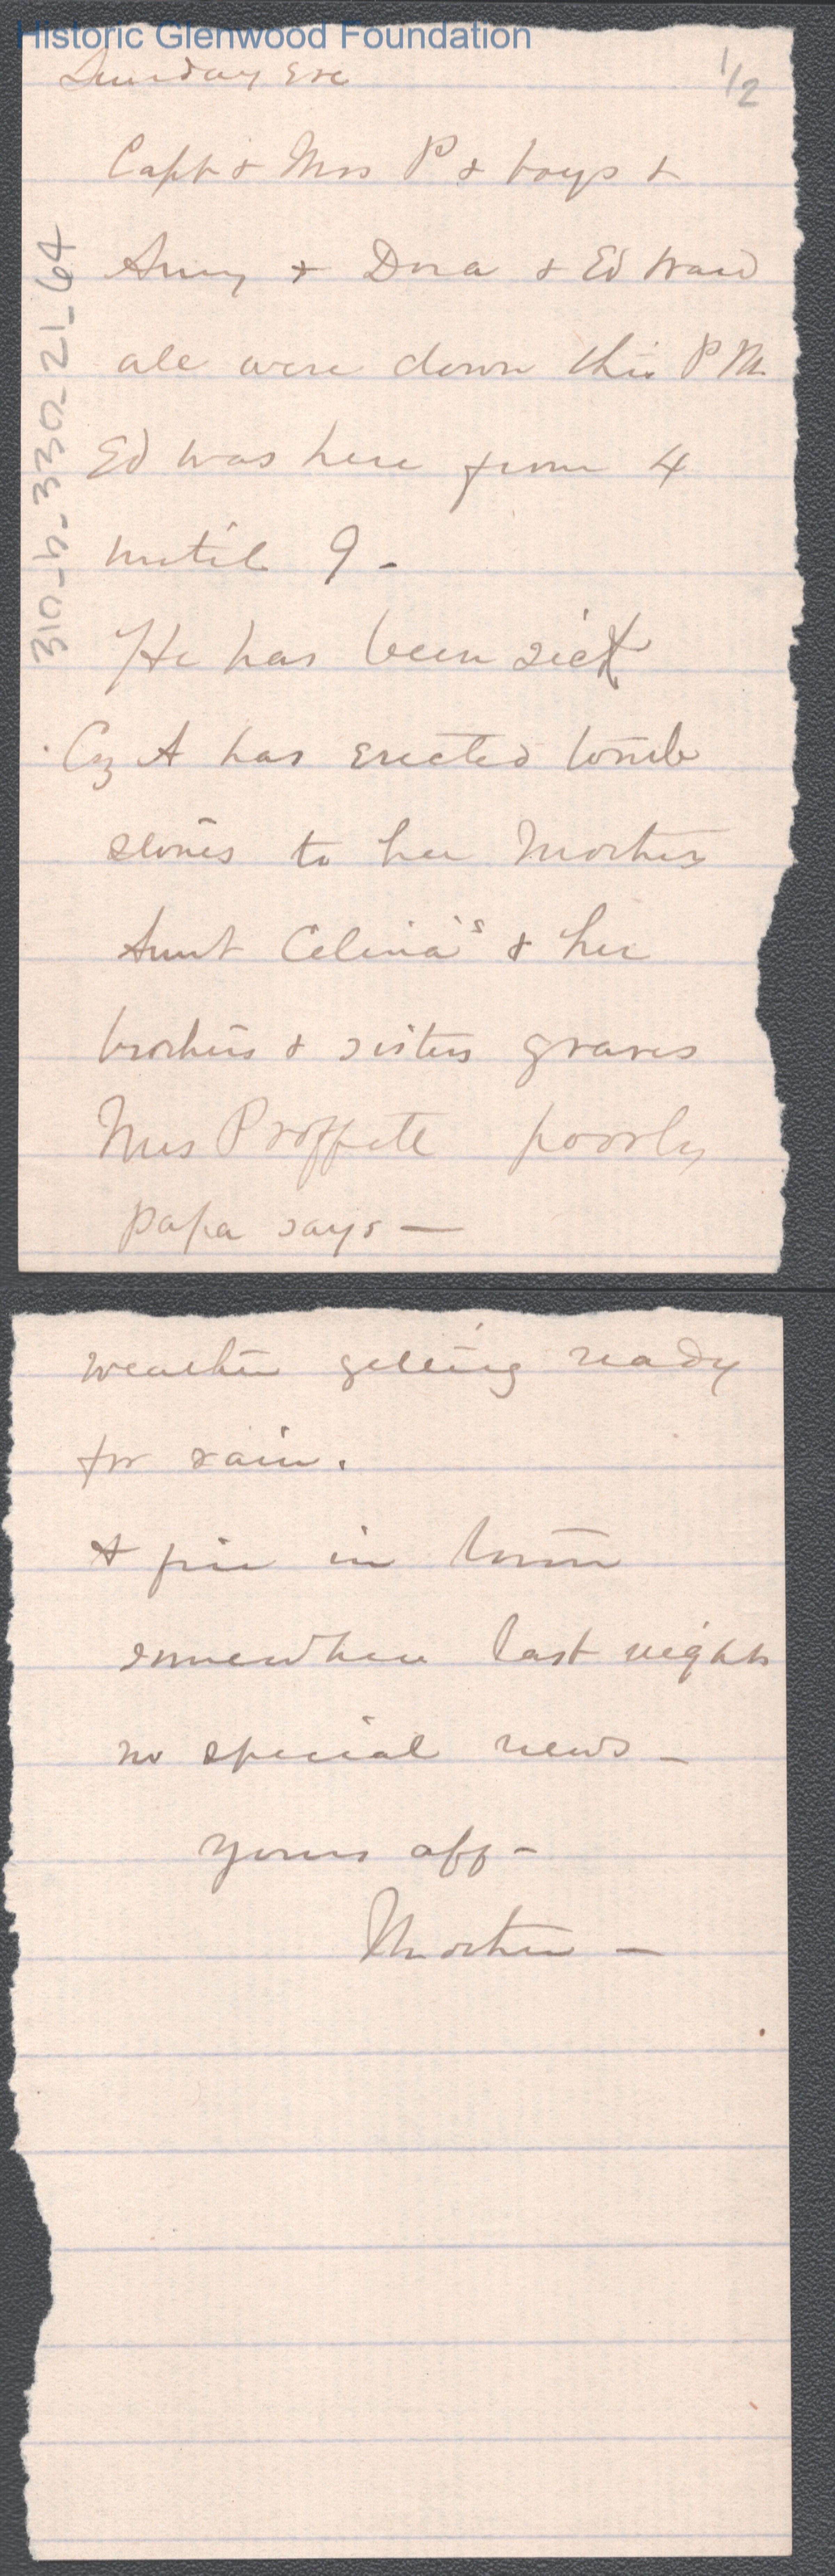 Historic Glenwood Foundation
Sunday Eve
1/2
Capt & Mrs P & boys &
Amy & Dora & Ed Ward
all were down this P M
Ed was here from 4
until 9 -
He has been sick
Cz A has erected tomb
stones to her Mother
Aunt Celina's & her
brothers & sisters graves
Mrs Proffitt poorly
papa says —
310_b_330_21_64
weather getting ready
for rain.
A fire in town
somewhere last night
no special news -
yours aff -
Mother -